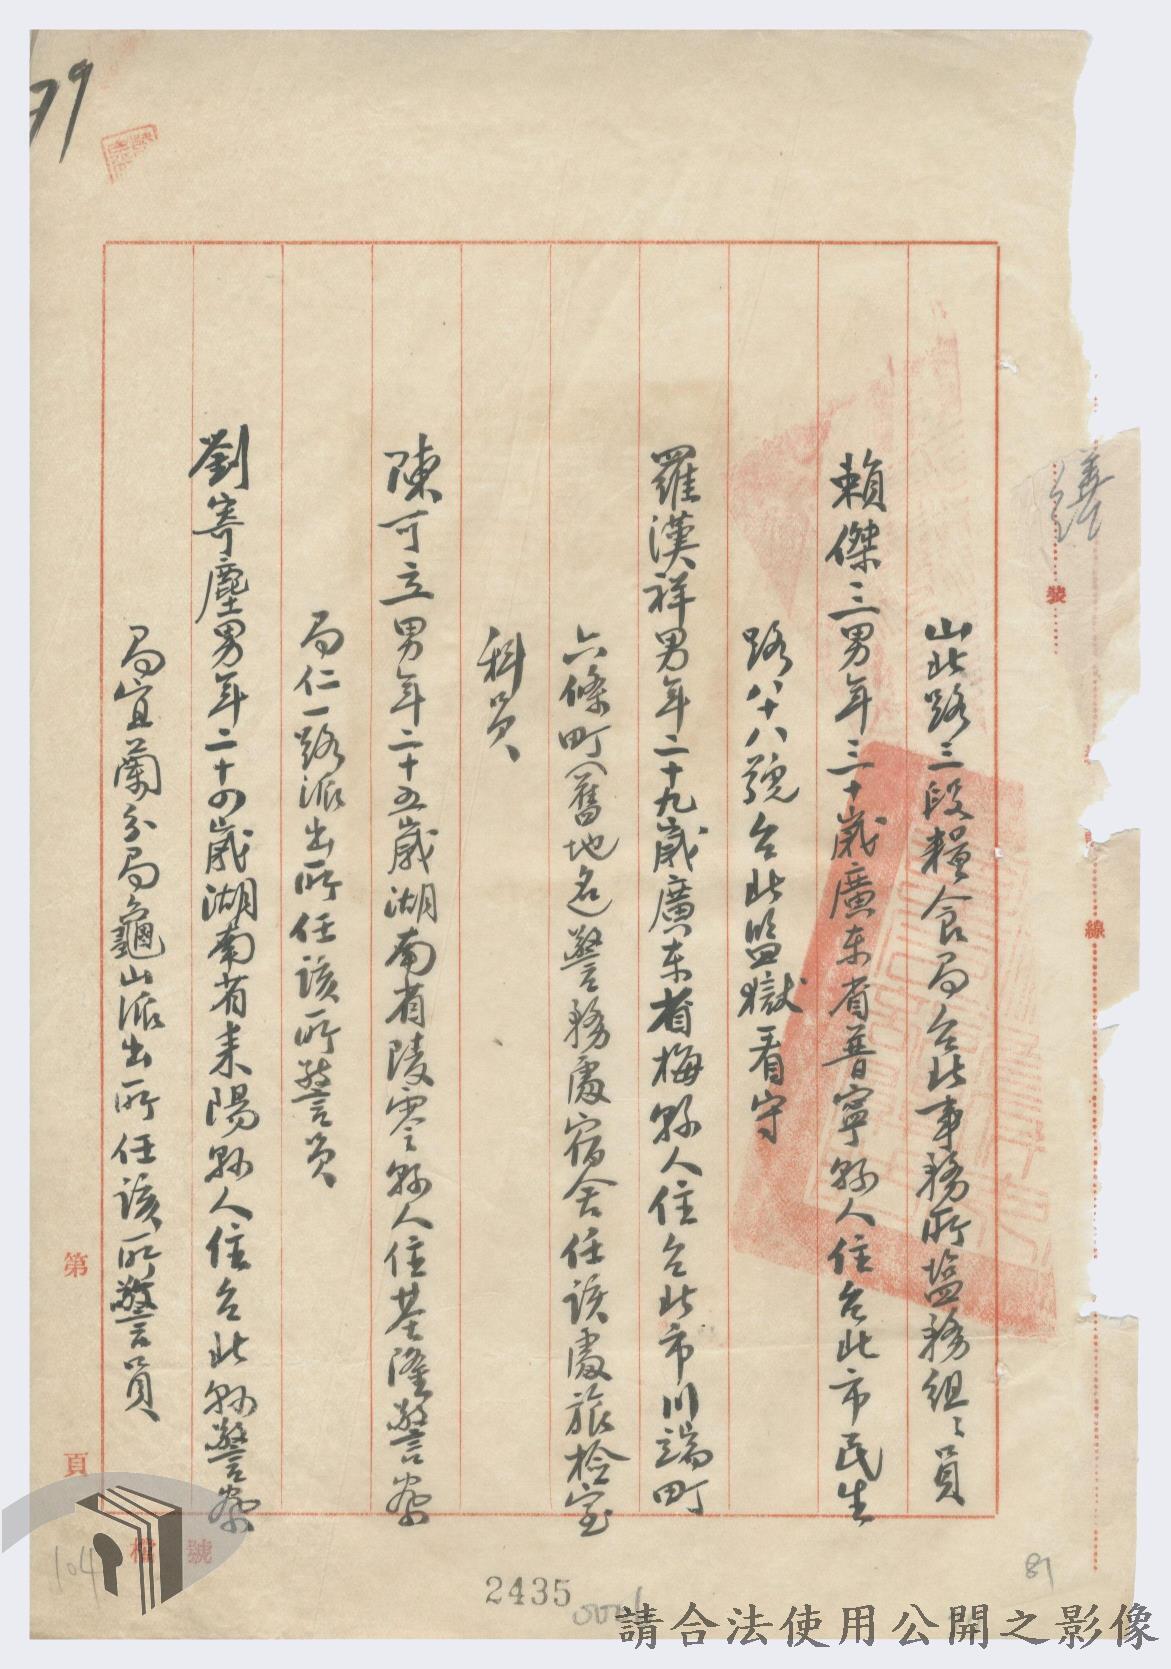 山北路三段糧食局台北事務所鹽務組〻員
賴傑三男年三十歲廣东省普寧縣人住台北市民生
路八十八號台北監獄看守
羅漢祥男年二十九歲廣东省梅縣人住台北市川端町
六條町(舊地名)警務處宿舍任該處旅檢室
科员
陳可立男年二十五歲湖南省陵零縣人住基隆警察
局仁一路派出所任該所警员
劉寄塵男年二十四歲湖南省耒陽縣人住台北縣警察
局宜蘭分局龜山派出所任該所警員
裝
線
第
頁
檔 號
104
2435
81
請合法使用公開之影像